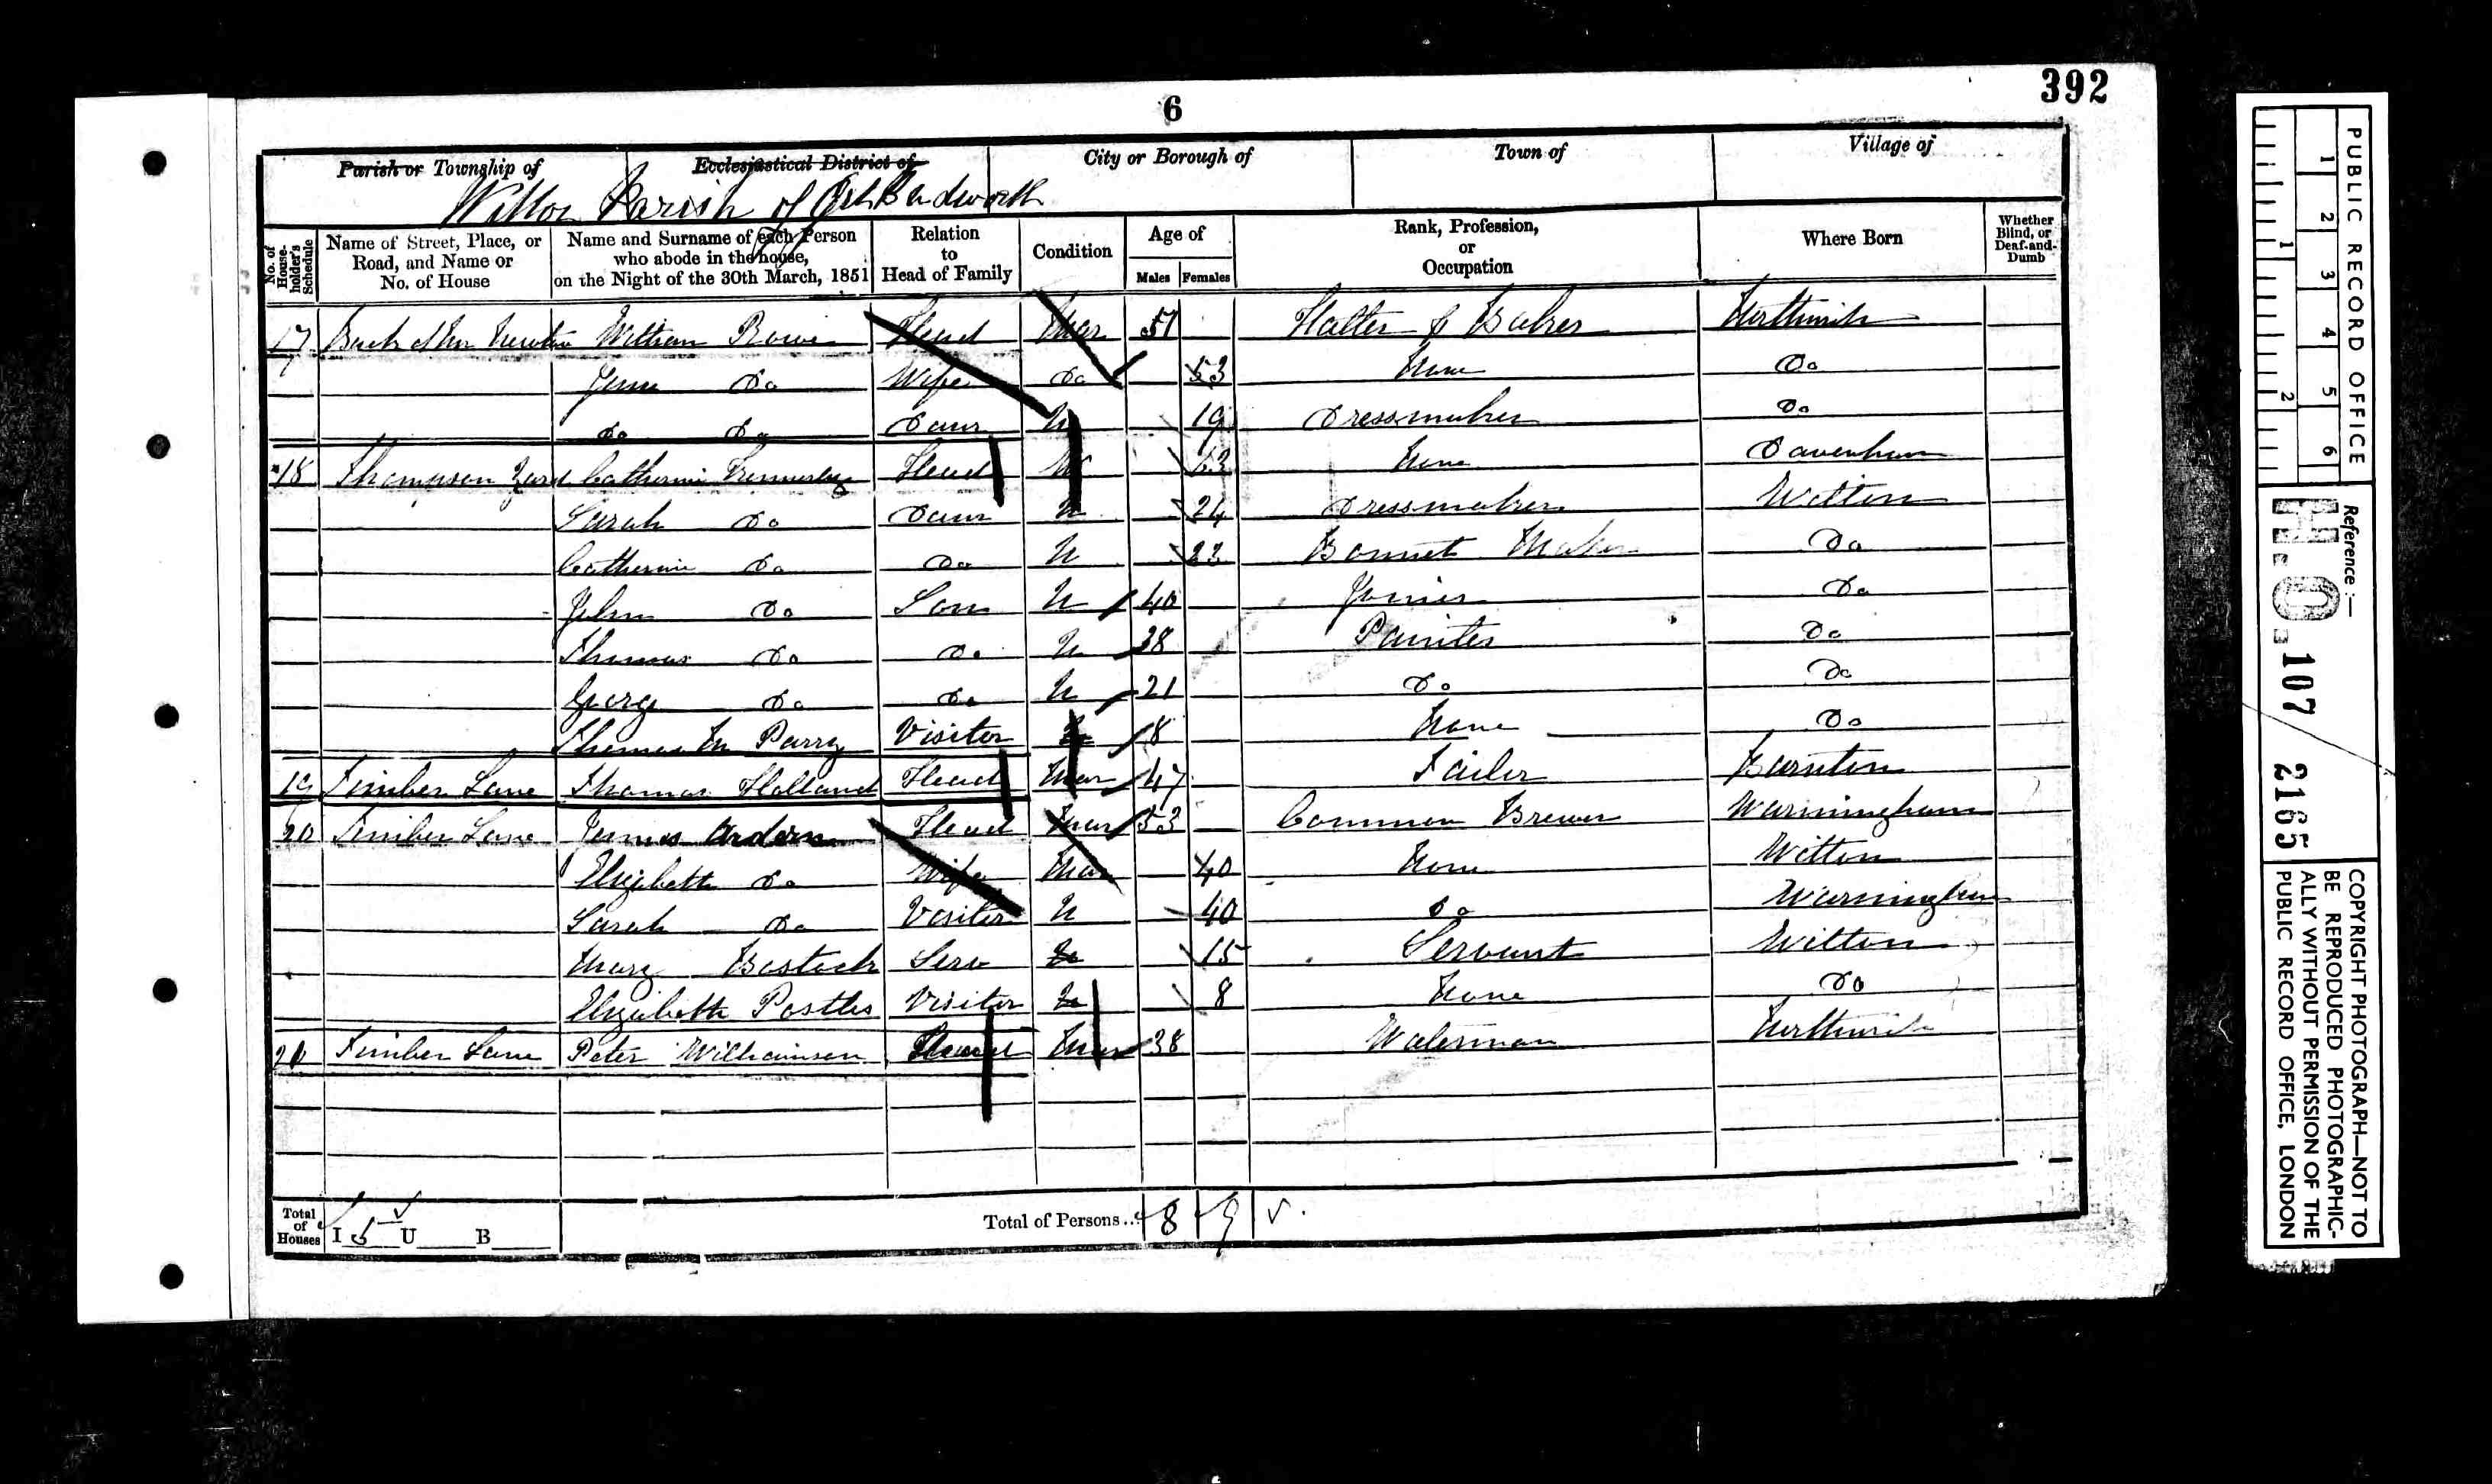 392
6
Parish or Township of Ecclesiastical District of City or Borough of Town of Village of
Witton Parish of Gt Budworth
No. of House-holder's Schedule
Name of Street, Place, or Road, and Name or No. of House
Name and Surname of each Person who abode in the house, on the Night of the 30th March, 1851
Relation to Head of Family
Condition
Age of
Males Females
Rank, Profession, or Occupation
Where Born
Whether Blind, or Deaf-and-Dumb
17 Back of the William Head Mar 51 Hatter & Northwich
Jane Do Wife Do 53 None Do
Do Do Daur U 19 Dressmaker Do
18 Thompson Yard Catherine Head W 63 None Davenham
Sarah Do Daur U 24 Dressmaker Witton
Catherine Do Do U 22 Bonnet Maker Do
John Do Son U 40 Joiner Do
Thomas Do Do U 38 Painter Do
George Do Do U 21 Do Do
Thomas M Parry Visitor U 8 None Do
19 Timber Lane Thomas Holland Head Mar 47 Tailor Barnton
20 Timber Lane James Ardern Head Mar 53 Common Brewer Warmingham
Elizabeth Do Wife Mar 40 None Witton
Sarah Do Visitor U 40 Do Warmingham
Mary Bostock Serv U 15 Servant Witton
Elizabeth Postles Visitor U 8 None Do
21 Timber Lane Peter Williamson Head Mar 38 Waterman Northwich
Total of Houses I 5 U B
Total of Persons... 8 9
PUBLIC RECORD OFFICE
1 2 3 4 5 6
1 2
Reference:—
H.O. 107 2165
COPYRIGHT PHOTOGRAPH—NOT TO
BE REPRODUCED PHOTOGRAPHIC-
ALLY WITHOUT PERMISSION OF THE
PUBLIC RECORD OFFICE, LONDON